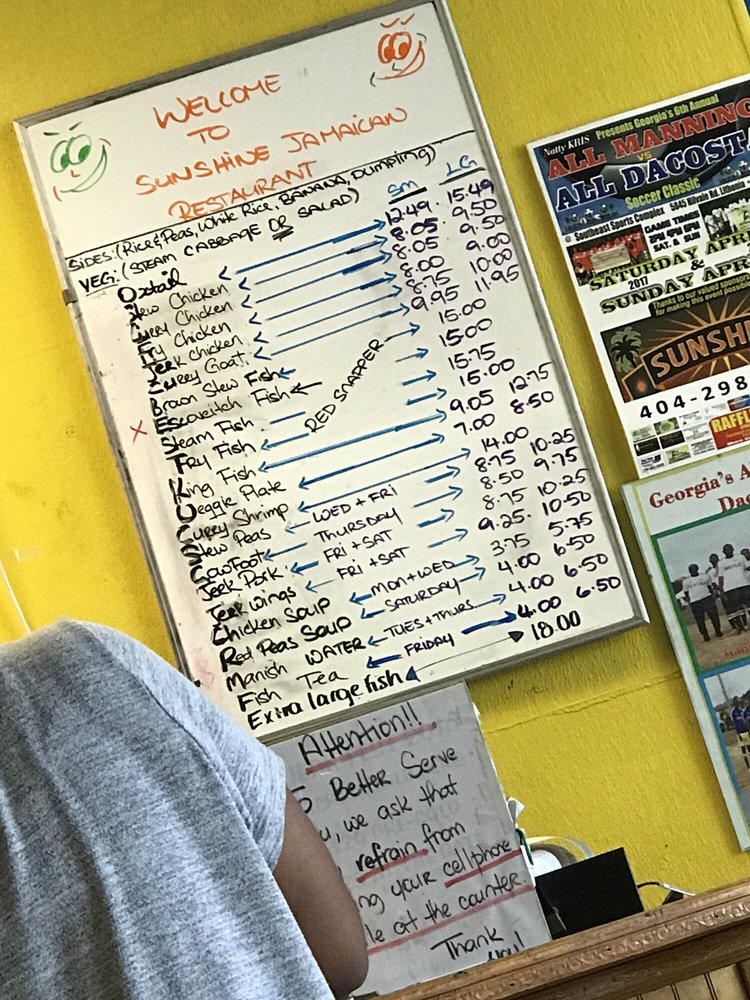 WELCOME
TO
SUNSHINE JAMAICAN
RESTAURANT
SIDES: (Rice & Peas, White Rice, BANANA, Dumpling)
VEG: (STEAM CABBAGE OR SALAD)
Sm LG
Oxtail 12.49 15.49
Stew Chicken 8.05 9.50
Curry Chicken 8.05 9.50
Fry Chicken 8.00 9.00
Jerk Chicken 8.75 10.00
Curry Goat 9.95 11.95
Brown Stew Fish 15.00
Escoveitch Fish 15.00
RED SNAPPER
Steam Fish 15.75
Fry Fish 15.00
King Fish 9.05 12.75
Veggie Plate 7.00 8.50
Curry Shrimp 14.00
Stew Peas WED + FRI 8.75 10.25
CowFoot THURSDAY 8.50 9.75
Jerk Pork FRI + SAT 8.75 10.25
Jerk Wings FRI + SAT 9.25 10.50
Chicken SOUP MON + WED 3.75 5.75
Red Peas SOUP SATURDAY 4.00 6.50
Manish WATER TUES + THURS 4.00 6.50
Fish Tea FRIDAY 4.00 6.50
Extra large fish 18.00
Attention!!
Better Serve
, we ask that
refrain from
your cellphone
at the counter.
Thank
Natty KRIS Presents Georgia's 6th Annual
ALL MANNING
VS
ALL DACOSTA
Soccer Classic
@ Southeast Sports Complex
GAME TIMES
SAT. & SUN
SATURDAY APR
2017 &
SUNDAY APR
Thanks to our valued sponsors
for making this event possible
SUNSH
404-298
RAFFL
Georgia's A
Da